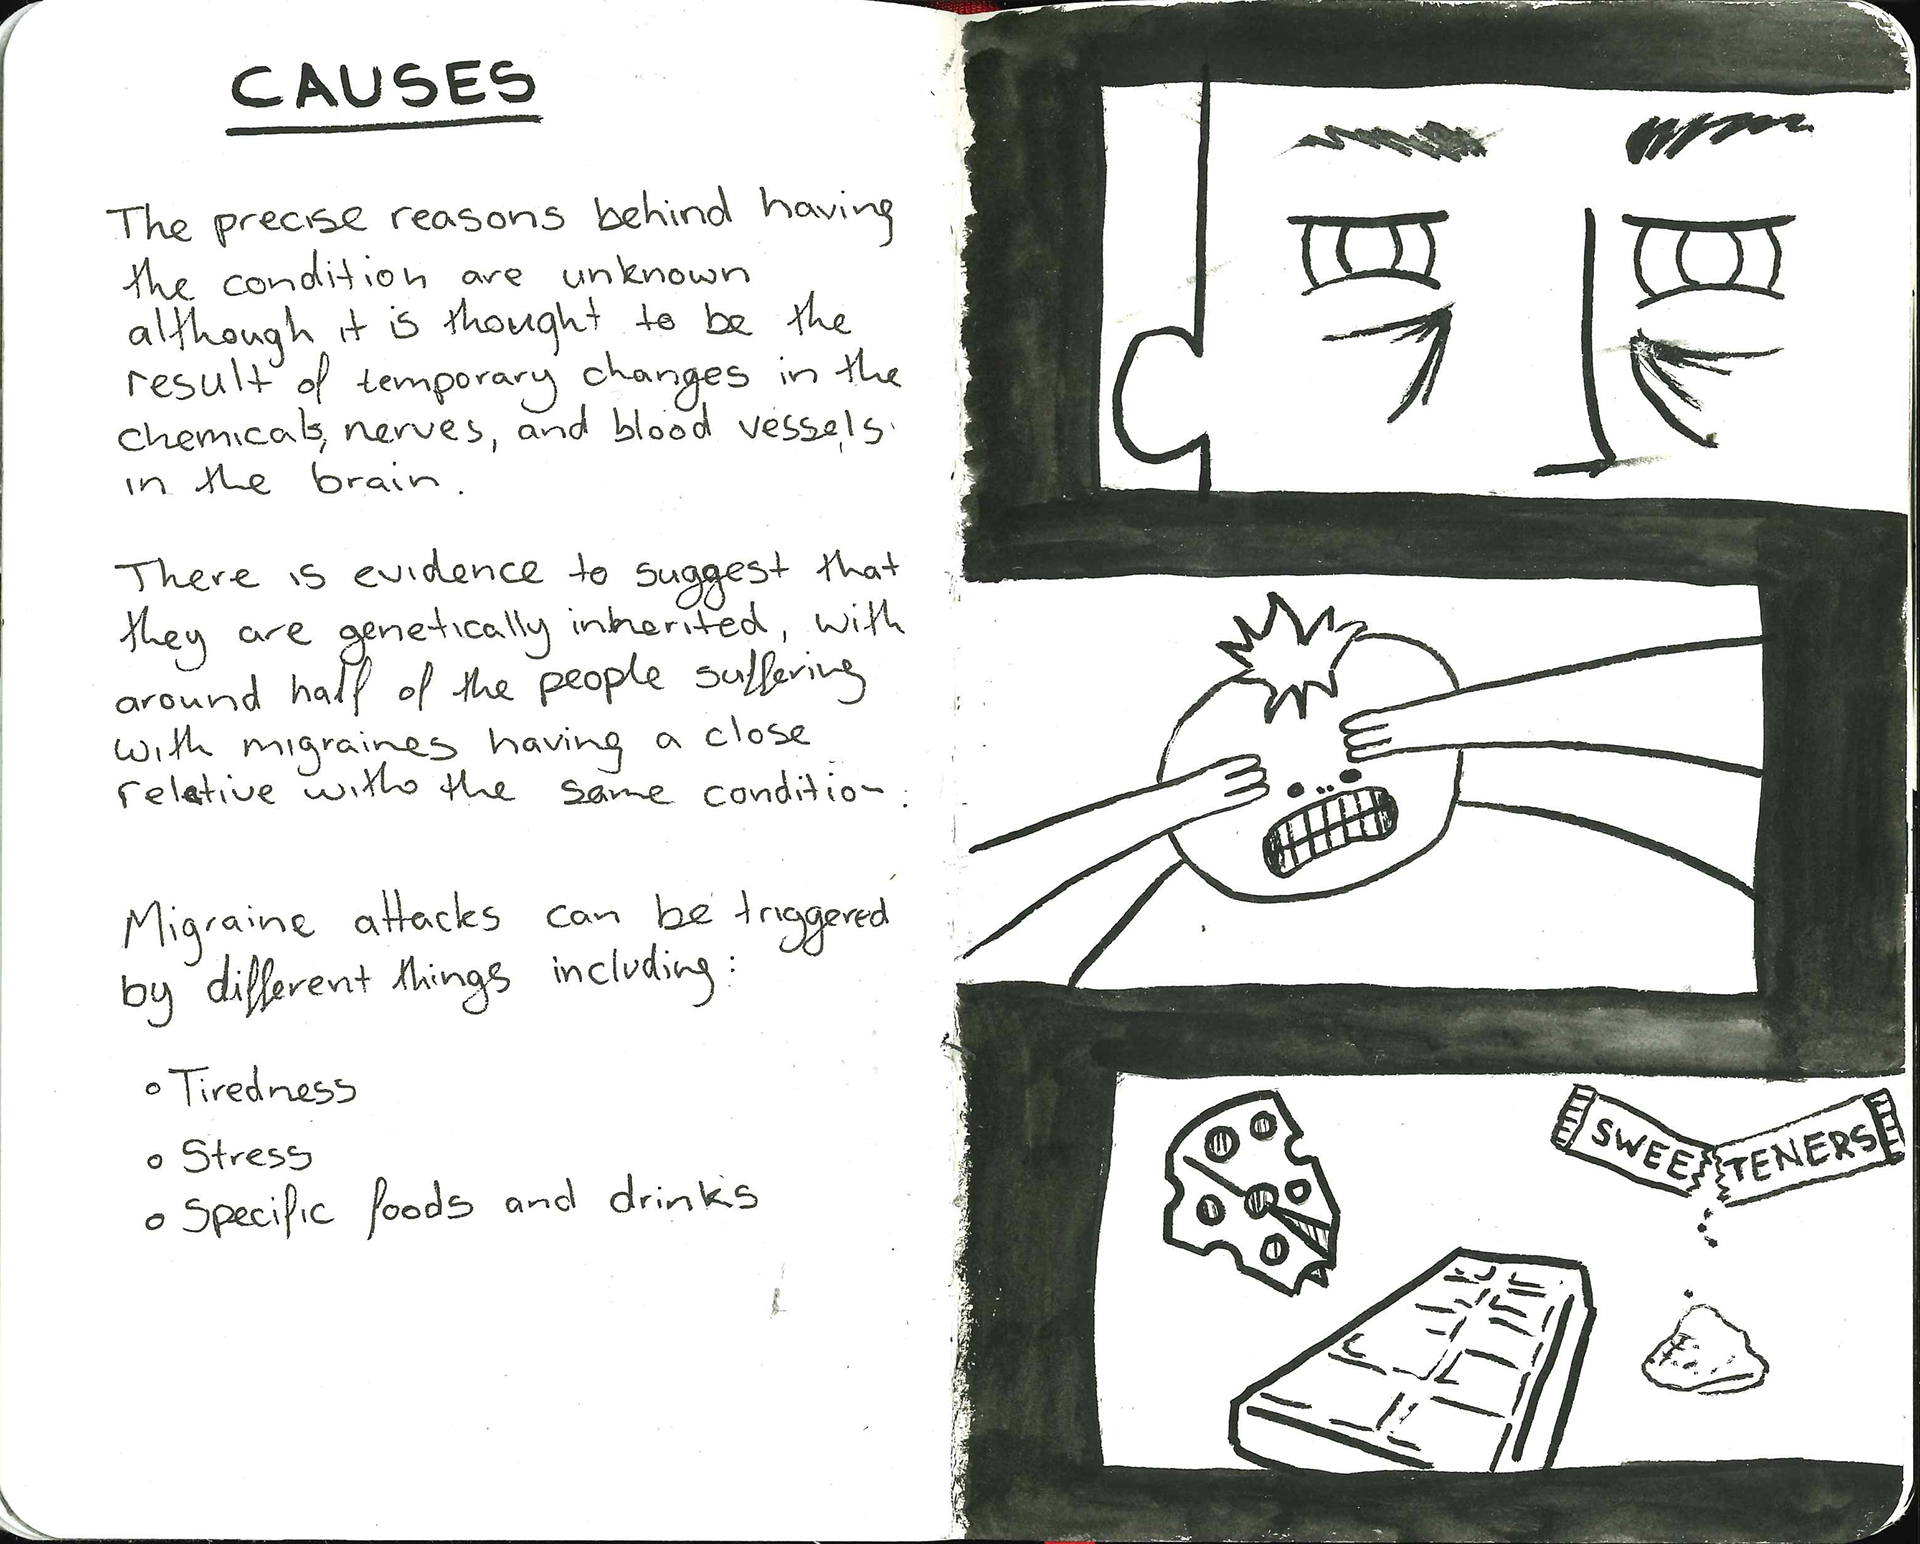 CAUSES
The precise reasons behind having
the condition are unknown
although it is thought to be the
result of temporary changes in the
chemicals, nerves, and blood vessels
in the brain.
There is evidence to suggest that
they are genetically inherited, with
around half of the people suffering
with migraines having a close
relative with the same condition.
Migraine attacks can be triggered
by different things including:
• Tiredness
• Stress
• Specific foods and drinks
SWEE TENERS